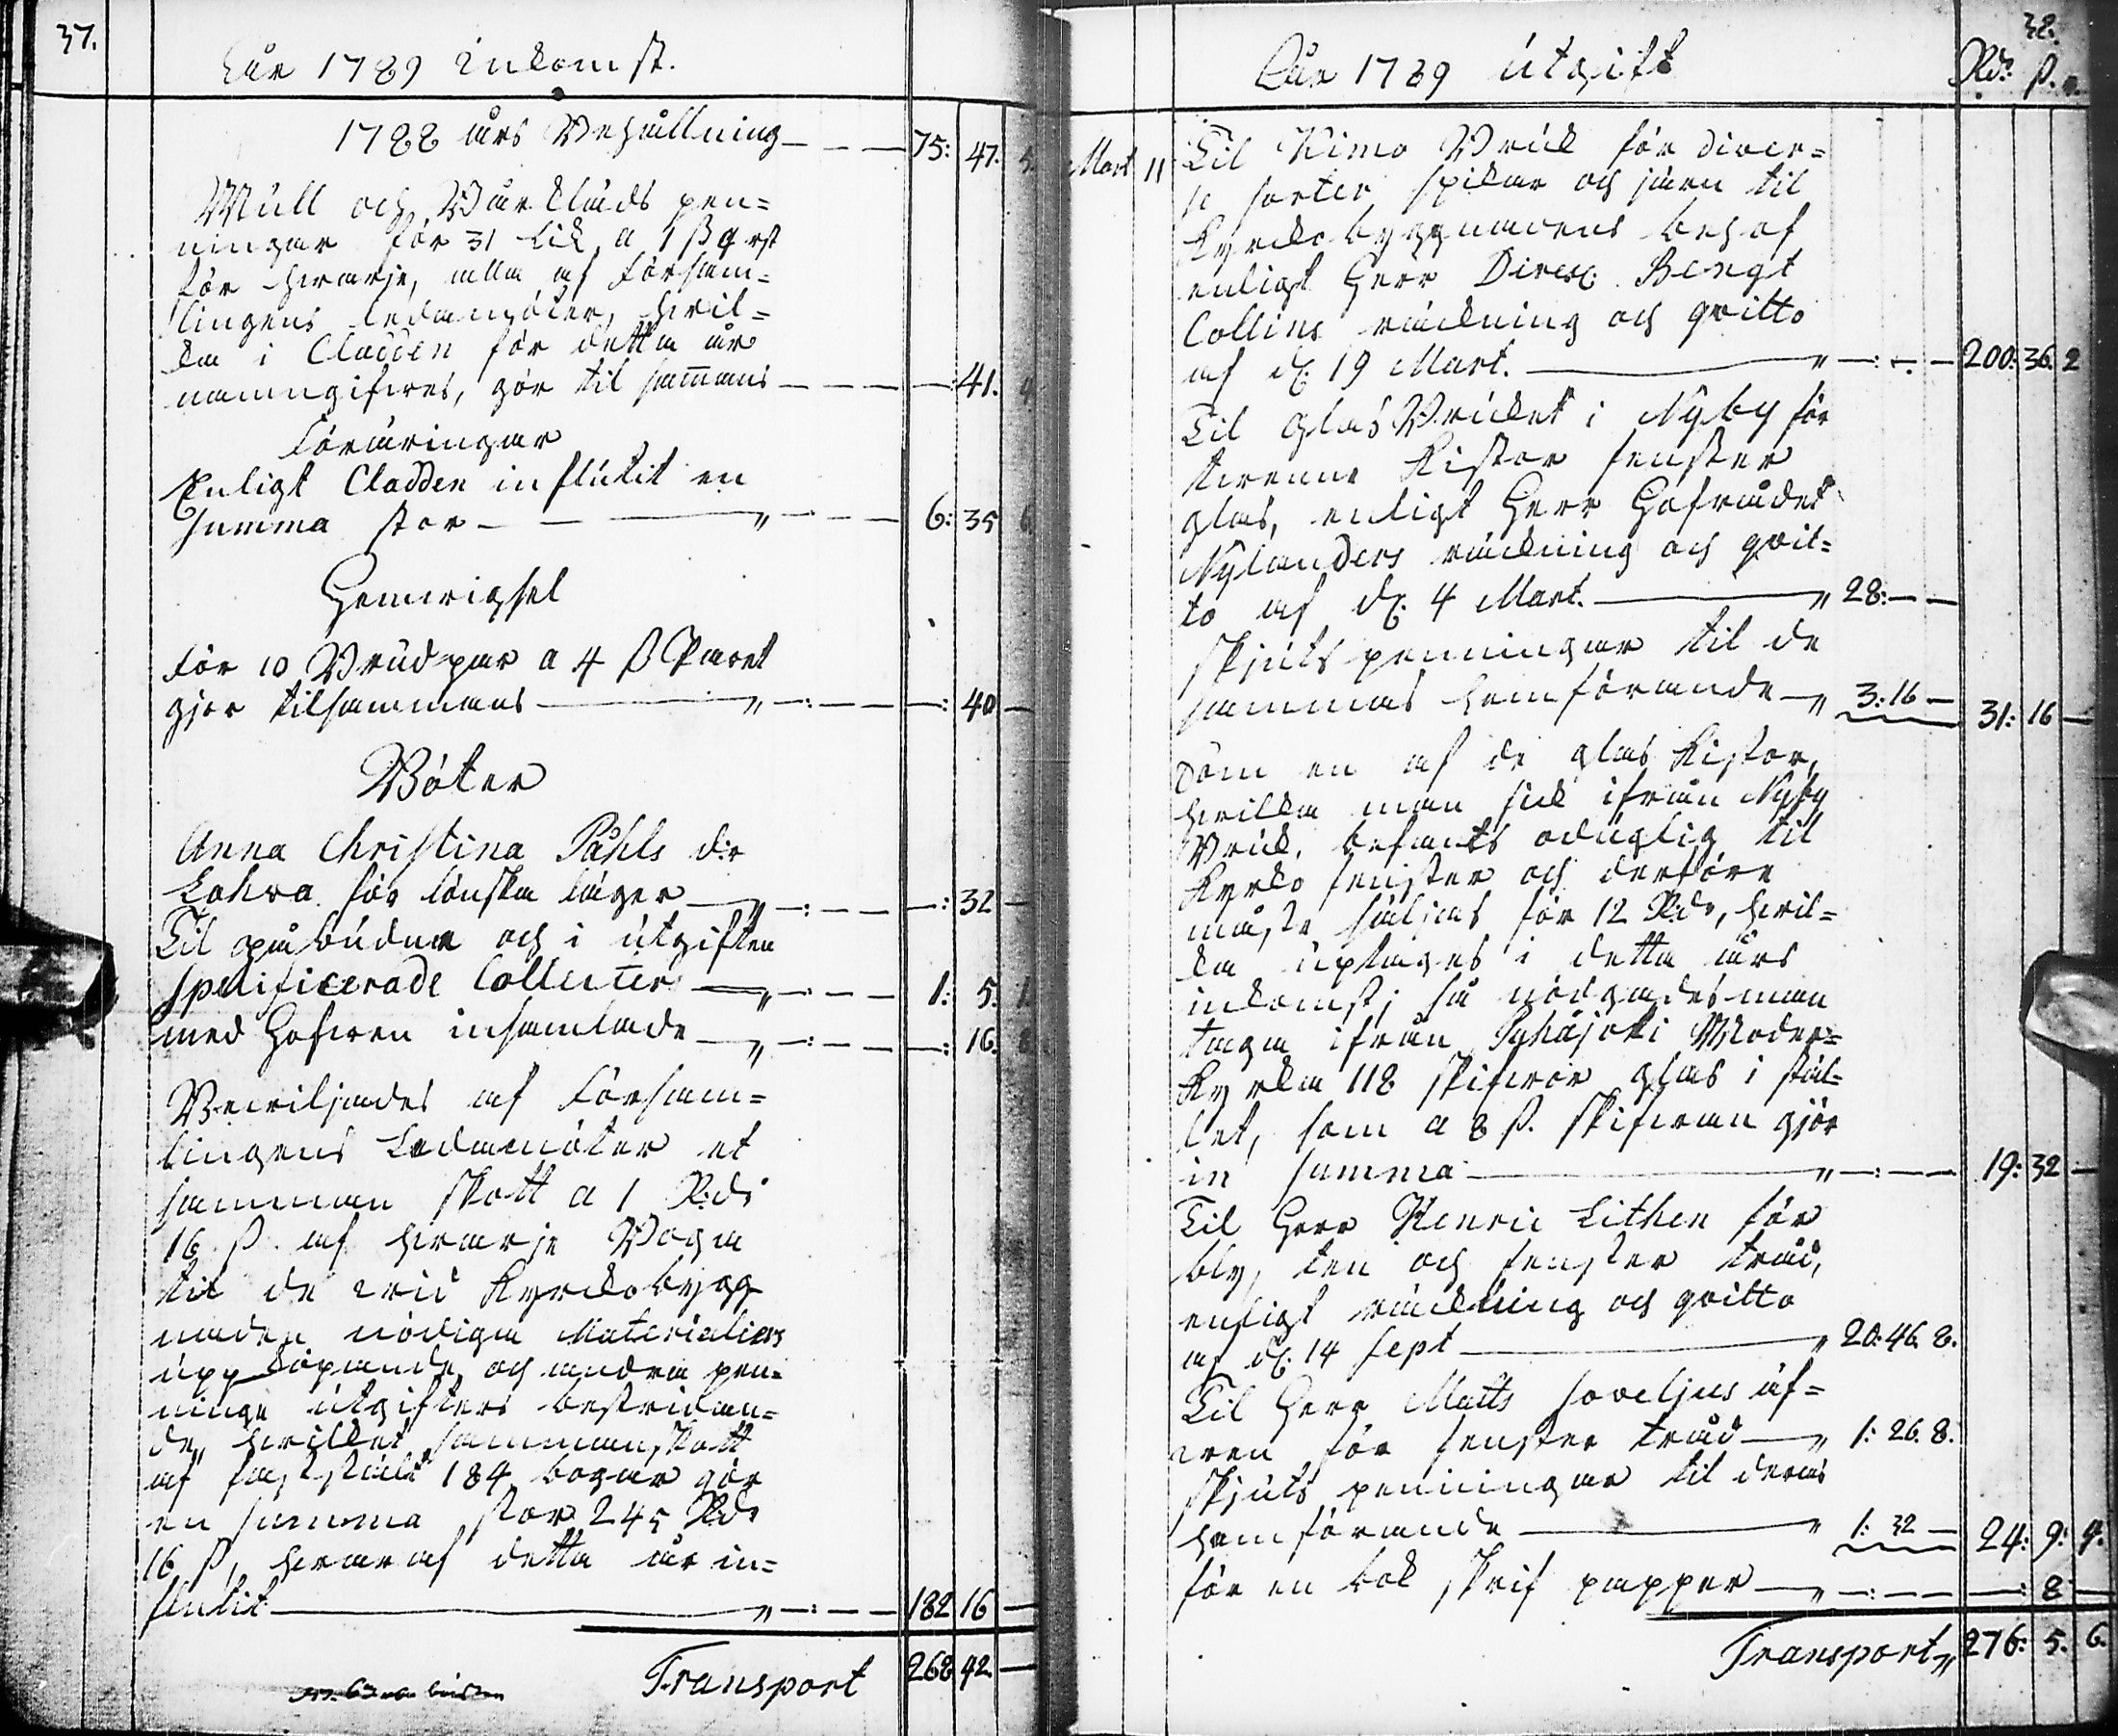 37.
Åhr 1789 Inkomst.
1788 års Behållning 75: 47. 5.
Mull och Bårklädes pen=
ningar för 31 Lik a 1 ß 4 rst
för hvarje, alla af Försam=
lingens ledamöter, hvil=
ka i Cladden för detta år
namngifves, gör til sam̄ans 41. 4
Föräringar
Enligt Cladden influtit en
summa stor 6: 35 6
Hemvigsel
För 10 Brudpar a 4 ß Paret
gjör tilsammans 40 —
Böter
Anna Christina Påhls d:r
Lahva för lönska läger 32 —
Til påbudne och i utgiften
specificerade Collecter 1: 5. 1
med Hofven insamlade 16. 8
Beviljades af Försam=
lingens Ledamöter et
samman skott a 1 R:d:
16 ß. af hvarje Boga
til de vid Kyrckobygg
naden nödiga Materialiers
uppköpande och andra pen=
ninge utgifters bestridan=
de, hvilket sammanskott
af fastställt 184 bogar gör
en summa stor 245 Rd:
16 ß, hvaraf detta år in=
flutit 182 16 —
Transport 268 42. —
32.
Åhr 1789 Utgift Rd: ß. r.
Mart 11 Til Kimo Bruk för diver=
se sorter spikar och järn til
Kyrckobyggnadens behof
enligt Herr Direct. Bengt
Collins räckning och qvitto
af d: 19 Mart. 200: 36. 2
Til GlasBruket i Nyby för
tvenne Kistor fenster
glas, enligt Herr Hofrådet
Nylanders räckning och qvit=
to af d: 4 Mart. 28: — —
Skjuts penningar til de
sammas hemförande 3: 16 — 31: 16 —
Som en af de glas Kistor,
hvilka man fick ifrån Nyby
Bruk, befants oduglig til
Kyrko fenster och derföre
måste säljas för 12 Rd:, hvil=
ka uptages i detta års
inkomst; så nödgades man
taga ifrån Pyhäjoki Moder=
Kyrka 118 skifvor glas i stäl=
let, som a 8 ß. Skifvan gjör
in summa 19: 32 —
Til Herr Henric Lithen för
bly, ten och fenster tråd,
enligt räckning och qvitto
af d: 14 Sept 20: 46. 8.
Til Herr Matts Soveljus äf=
ven för fenster tråd 1: 26. 8.
Skjuts penningar til deras
hemförande 1: 32 — 24: 9: 4.
för en bok Skrif papper 8 —
Transport 276: 5. 6.